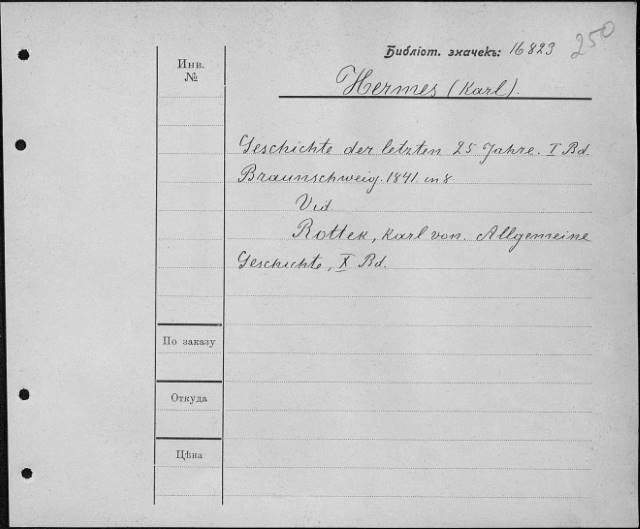 Библіот. значекъ: 16823
250
Инв.
№
Hermes (Karl).
Geschichte der letzten 25 Jahre. I Bd.
Braunschweig. 1841 in 8.
Vid
Rottek, Karl von. Allgemeine
Geschichte, X Bd.
По заказу
Откуда
Цѣна